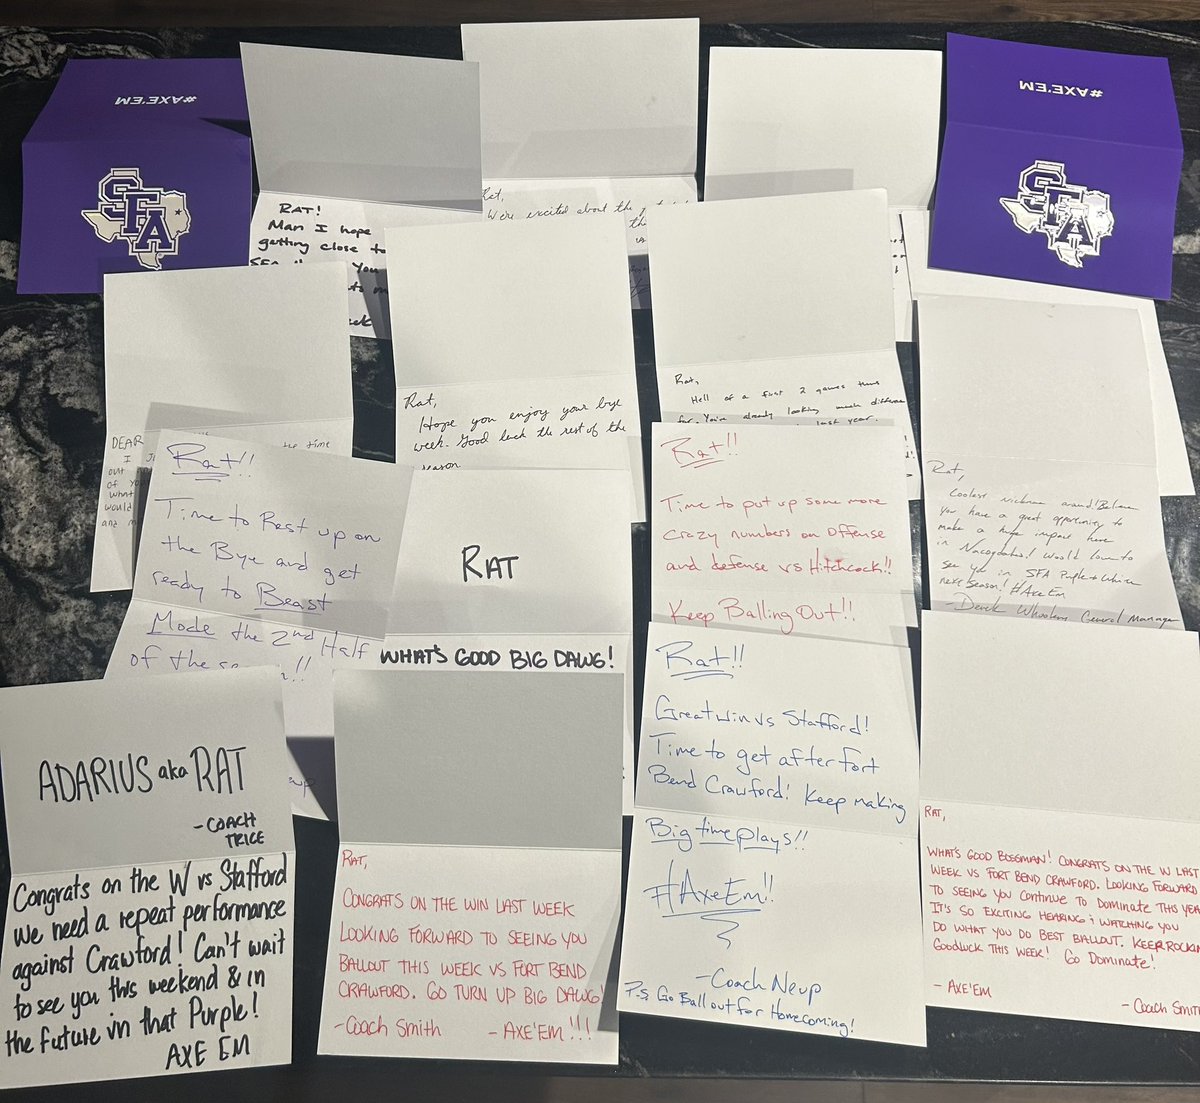 #AXE'EM
SFA
#AXE'EM
SFA
RAT!
Man I hope
getting close to
SFA
You
Rat,
We're excited about the
DEAR
I
the time
out
of yo
what
would
and m
Rat,
Hope you enjoy your bye
week. Good luck the rest of the
season.
Rat,
Hell of a first 2 games thus
far. You're already looking much difference
last year.
Rat,
Coolest nickname around! Believe
you have a great opportunity to
make a huge impact here
in Nacogdoches! Would love to
see ya in SFA Purple & White
next season! #AxeEm
- Derek General Manager
Rat!!
Time to Rest up on
the Bye and get
ready to Beast
Mode the 2nd Half
of the
RAT
WHAT'S GOOD BIG DAWG!
Rat!!
Time to put up some more
crazy numbers on offense
and defense vs Hitchcock!!
Keep Balling Out!!
ADARIUS aka RAT
- COACH
TRICE
Congrats on the W vs Stafford
we need a repeat performance
against Crawford! Can't wait
to see you this weekend & in
the future in that Purple!
AXE EM
RAT,
CONGRATS ON THE WIN LAST WEEK
LOOKING FORWARD TO SEEING YOU
BALLOUT THIS WEEK VS FORT BEND
CRAWFORD. GO TURN UP BIG DAWG!
- COACH SMITH - AXE'EM!!!
Rat!!
Great win vs Stafford!
Time to get after Fort
Bend Crawford! Keep making
Big time plays!!
#AxeEm!!
- Coach Neup
P.S. Go Ball out for Homecoming!
RAT,
WHAT'S GOOD BOSSMAN! CONGRATS ON THE W LAST
WEEK VS FORT BEND CRAWFORD. LOOKING FORWARD
TO SEEING YOU CONTINUE TO DOMINATE THIS YEAR
IT'S SO EXCITING HEARING & WATCHING YOU
DO WHAT YOU DO BEST BALLOUT. KEEP ROCKIN
GOODLUCK THIS WEEK! GO DOMINATE!
- AXE'EM
- COACH SMITH